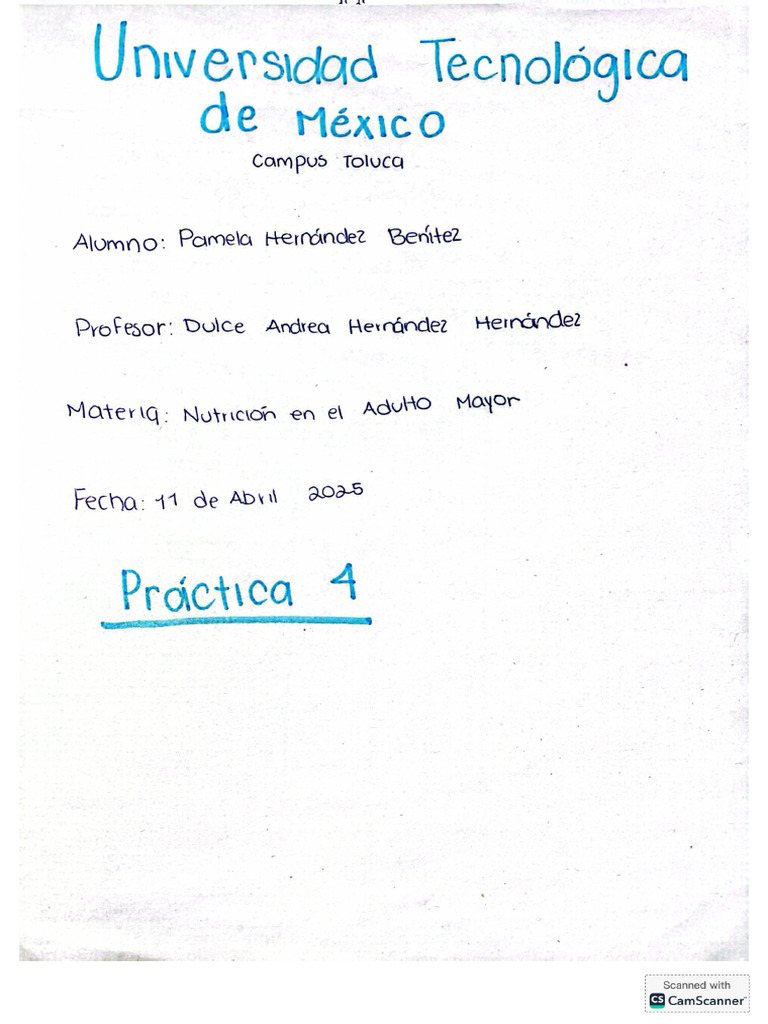 Universidad Tecnológica
de México
Campus Toluca
Alumno: Pamela Hernández Benítez
Profesor: Dulce Andrea Hernández Hernández
Materia: Nutrición en el Adulto Mayor
Fecha: 11 de Abril 2025
Práctica 4
Scanned with
CS CamScanner